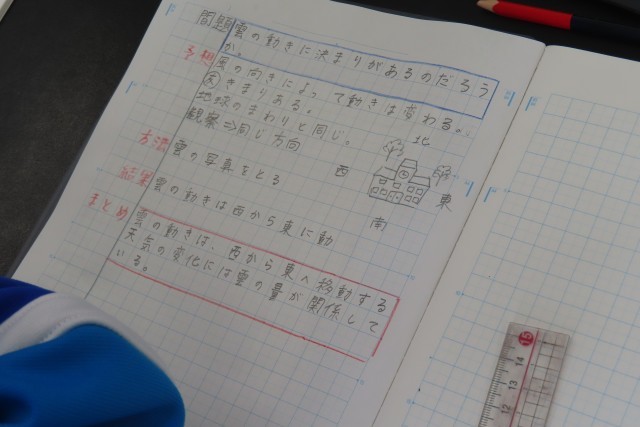 問題 雲の動きに決まりがあるのだろう
か。
予想 風の向きによって動きは変わる。
きまりある。
地球のまわりと同じ。
観察⇒同じ方向
北
西
東
南
方法 雲の写真をとる
結果 雲の動きは西から東に動
まとめ 雲の動きは、西から東へ移動する
天気の変化には雲の量が関係して
いる。
15
14
13
12